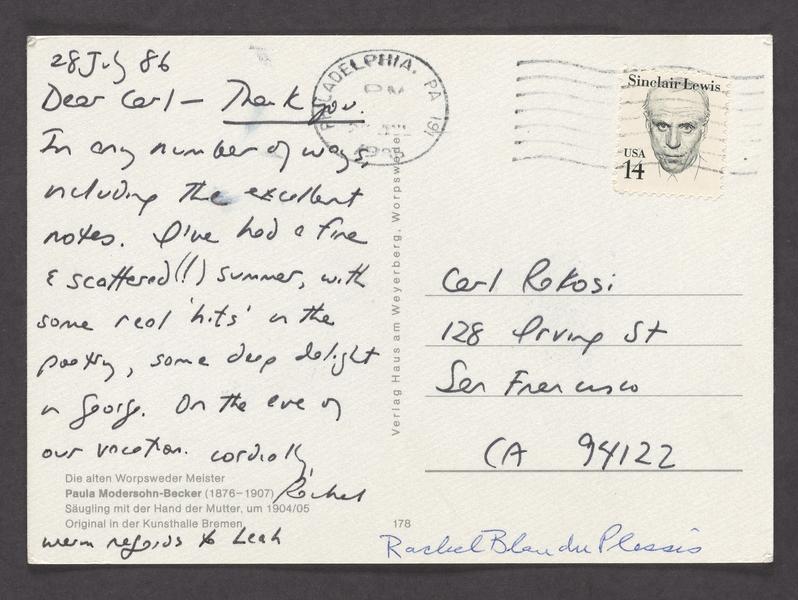 28 July 86
Dear Carl — Thank you.
In any number of ways,
including the excellent
notes. I've had a fine
& scattered(!!) summer, with
some real 'hits' in the
poetry, some deep delight
in George. On the eve of
our vacation. cordially,
Rachel
warm regards to Leah
Die alten Worpsweder Meister
Paula Modersohn-Becker (1876–1907)
Säugling mit der Hand der Mutter, um 1904/05
Original in der Kunsthalle Bremen
Verlag Haus am Weyerberg, Worpswede
178
PHILADELPHIA, PA 191
PM
Sinclair Lewis
USA
14
Carl Rakosi
128 Irving St
San Francisco
CA 94122
Rachel Blau du Plessis